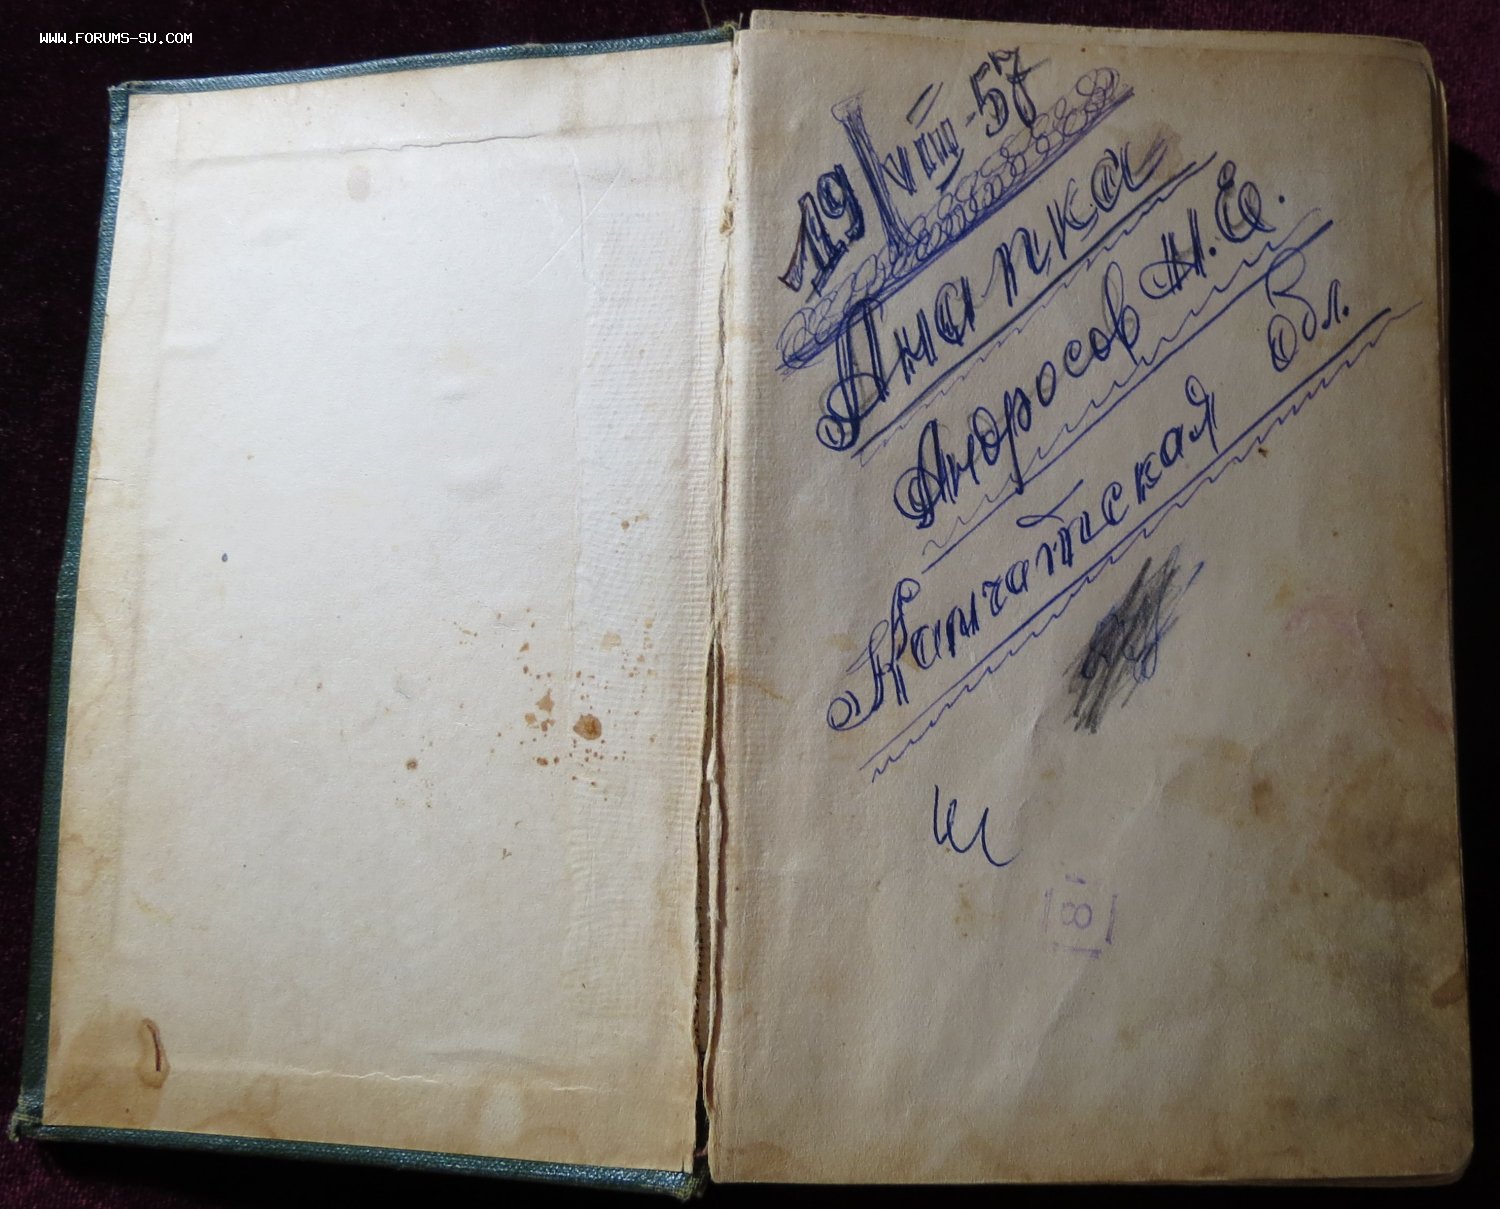 WWW.FORUMS-SU.COM
19/VIII-57
Анапка
Андросов Н.Е.
Камчатская обл.
8